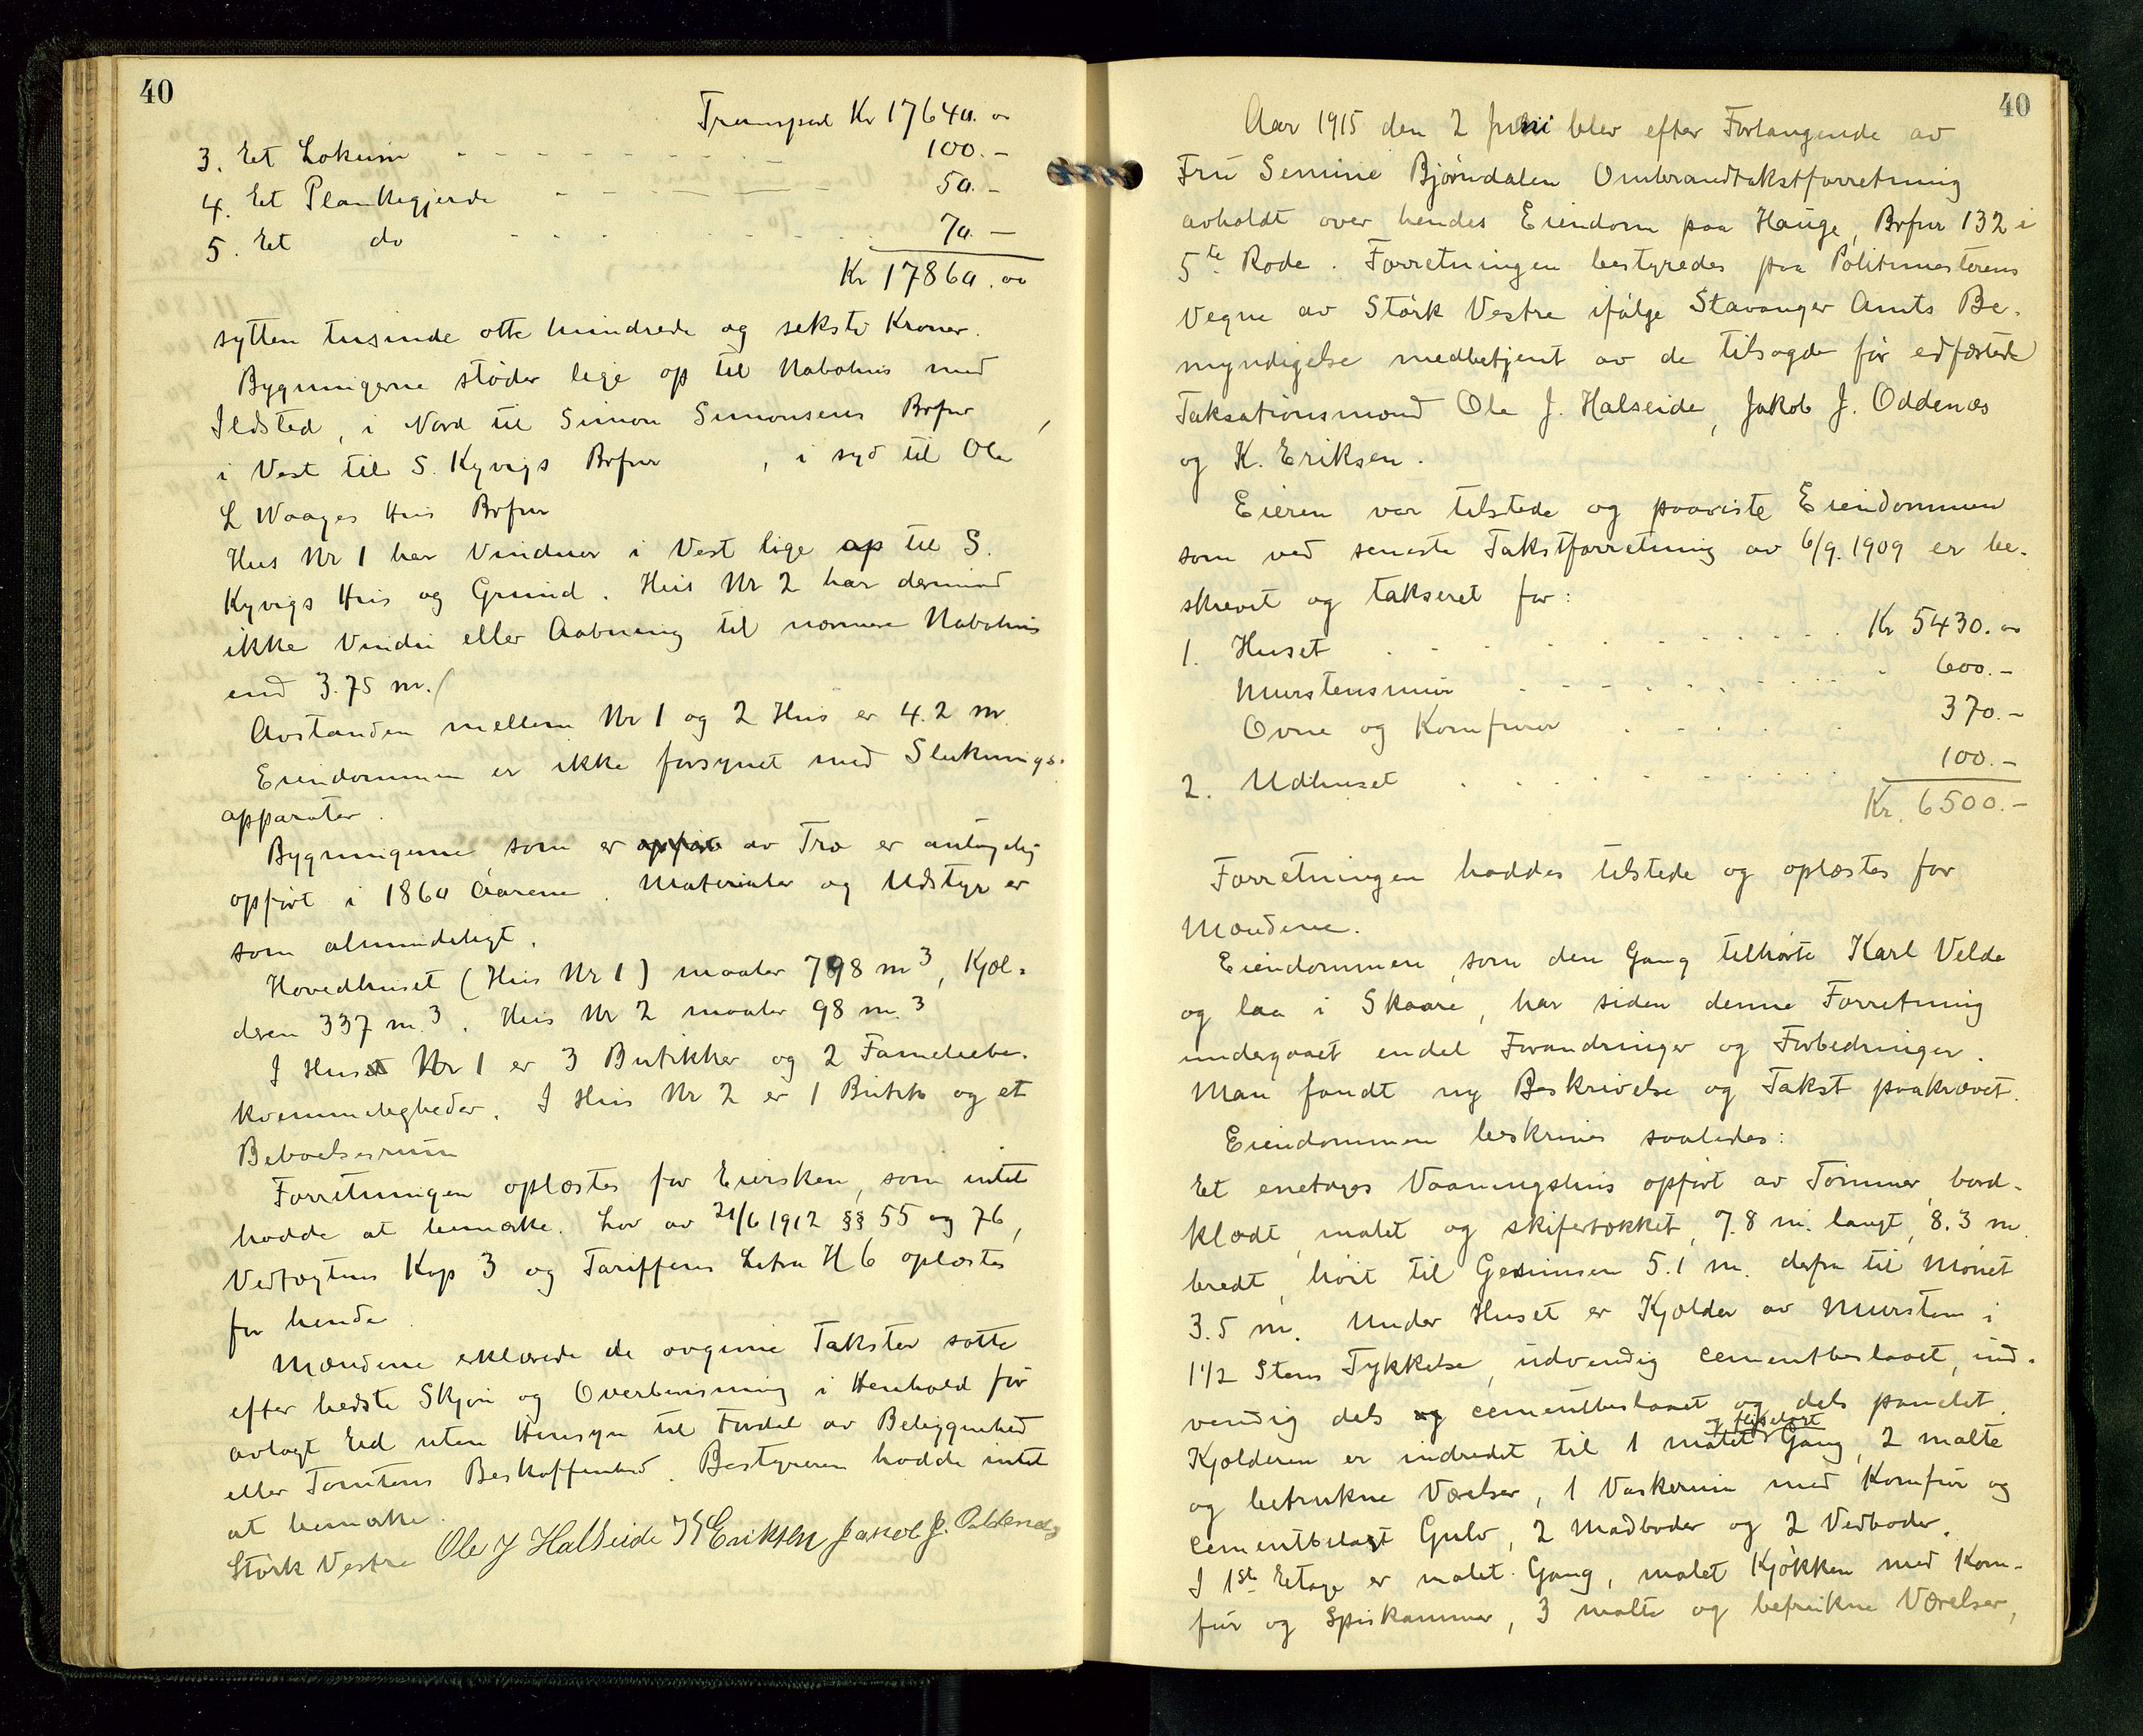 40
Transport Kr 17640.00
3. Et Lokum 100.-
4. Et Plankegjerde 50.-
5. Et do 70.-
Kr 17860.00
sytten tusinde otte hundrede og seksti Kroner.
Bygningerne støder lige op til Nabohus med
Ildsted, i Nord til Simon Simonsens Brfnr ,
i Vest til S. Kyvigs Brfnr , i syd til Ole
L Waages Hus Brfnr
Hus Nr 1 har Vinduer i Vest lige op til S.
Kyvigs Hus og Grund. Hus Nr 2 har dermod
ikke Vindu eller Aabning til nærmere Nabohus
end 3.75 m.
Avstanden mellem Nr 1 og 2 Hus er 4.2 m
Eiendommen er ikke forsynet med Sluknings-
apparater.
Bygningerne som er av Træ er antagelig
opført i 1860 Aarene. Materialer og Udstyr er
som almindeligt.
Hovedhuset (Hus Nr 1) maaler 798 m3, Kjæl-
deren 337 m.3. Hus Nr 2 maaler 98 m.3
I Hus Nr 1 er 3 Butikker og 2 Familiebe-
kvemmeligheder. I Hus Nr 2 er 1 Butik og et
Beboelsesrum
Forretningen oplæstes for Eiersken, som intet
hadde at bemærke. Lov av 21/6 1912 §§ 55 og 76,
Vedtægtens Kap 3 og Tariffens Litra H 6 oplæstes
for hende.
Mændene erklærede de avgivne Takster satte
efter bedste Skjøn og Overbevisning i Henhold før
avlagt Ed uten Hensyn til Fordel av Beliggenhed
eller Tomtens Beskaffenhed. Bestyreren hadde intet
at bemærke.
Størk Vestre Ole J Halseide K Eriksen Jakob J. Oddenæs
40
Aar 1915 den 2 Juni blev efter Forlangende av
Fru Semine Bjørndalen Ombrandtakstforretning
avholdt over hendes Eiendom paa Hauge, Brfnr 132 i
5te Rode. Forretningen bestyredes paa Politimesterens
Vegne av Størk Vestre ifølge Stavanger Amts Be-
myndigelse medbetjent av de tilsagde før edfæstede
Taksationsmænd Ole J. Halseide, Jakob J. Oddenæs
og K. Eriksen.
Eieren var tilstede og paaviste Eiendommen
som ved seneste Takstforretning av 6/9. 1909 er be-
skrevet og takseret for:
1. Huset Kr 5430.00
Murstensmur 600.-
Ovne og Komfurer 370.-
2. Udhuset 100.-
Kr. 6500.-
Forretningen haddes tilstede og oplæstes for
Mændene.
Eiendommen, som den Gang tilhørte Karl Velde
og laa i Skaare, har siden denne Forretning
undergaaet endel Forandringer og Forbedringer.
Man fandt ny Beskrivelse og Takst paakrævet.
Eiendommen beskrives saaledes:
Et enetages Vaaningshus opført av Tømmer, bord-
klædt, malet og skifertækket, 7.8 m. langt, 8.3 m.
bredt, høit til Gesimsen 5.1 m. derfra til Mønet
3.5 m. Under Huset er Kjælder av Mursten i
1 1/2 Stens Tykkelse, udvendig cementbeslaaet, ind-
vendig dels cementbeslaaet og dels panelet.
Kjælderen er indredet til 1 malet og fliselagt Gang, 2 malte
og betrukne Værelser, 1 Vaskerum med Komfur og
cementbelagt Gulv, 2 Madboder og 2 Vedboder.
I 1ste Etage er malet Gang, malet Kjøkken med Kom-
fur og Spiskammer, 3 malte og betrukne Værelser,